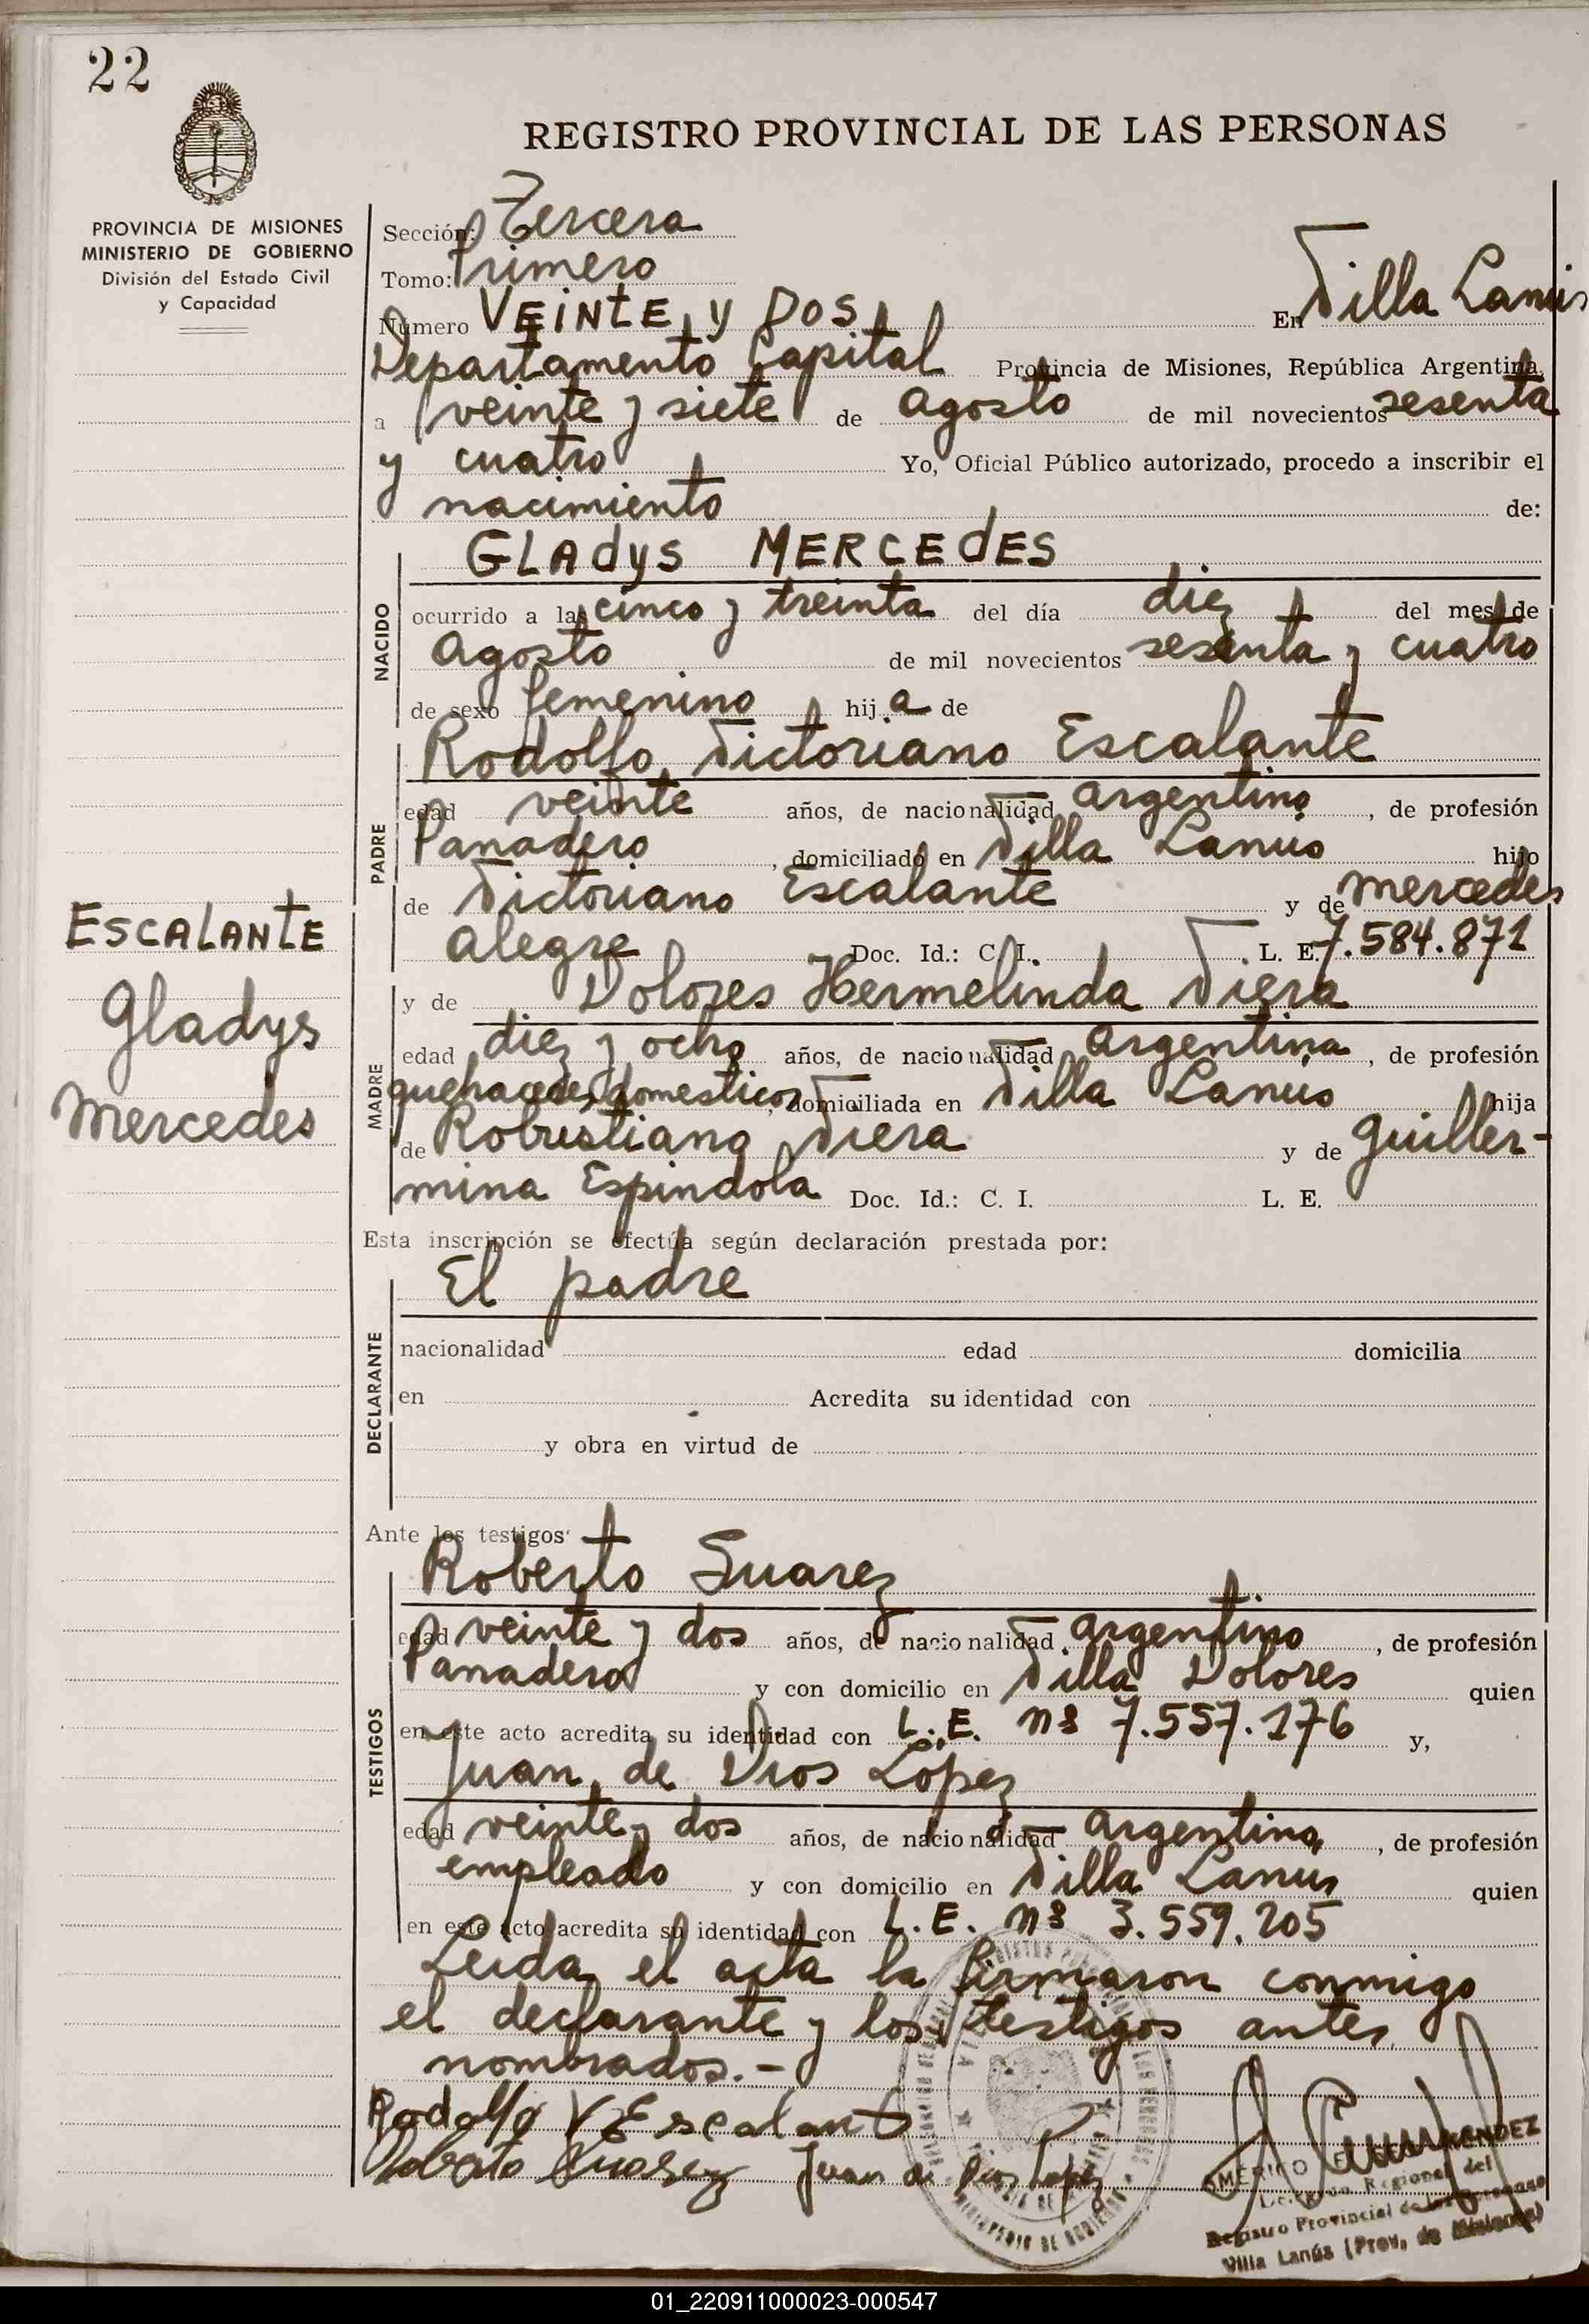 22
REGISTRO PROVINCIAL DE LAS PERSONAS
PROVINCIA DE MISIONES
MINISTERIO DE GOBIERNO
División del Estado Civil
y Capacidad
Sección: Tercera
Tomo: Primero
Número VEINTE y DOS En Villa Lanús
Departamento Capital Provincia de Misiones, República Argentina,
a veinte y siete de agosto de mil novecientos sesenta
y cuatro Yo, Oficial Público autorizado, procedo a inscribir el
nacimiento de:
NACIDO
GLAdyS MERCEdES
ocurrido a las cinco y treinta del día diez del mes de
agosto de mil novecientos sesenta y cuatro
de sexo femenino hij a de
PADRE
Rodolfo Victoriano Escalante
edad veinte años, de nacionalidad argentino, de profesión
Panadero, domiciliado en Villa Lanús hijo
de Victoriano Escalante y de mercedes
alegre Doc. Id.: C. I. L. E. 7.584.871
MADRE
y de Dolores Hermelinda Viera
edad diez y ocho años, de nacionalidad argentina, de profesión
quehaceres domesticos, domiciliada en Villa Lanús hija
de Robustiano Viera y de Guiller-
mina Espindola Doc. Id.: C. I. L. E.
ESCALANTE
Gladys
Mercedes
Esta inscripción se efectúa según declaración prestada por:
DECLARANTE
El padre
nacionalidad edad domicilia
en Acredita su identidad con
y obra en virtud de
Ante los testigos:
TESTIGOS
Roberto Suarez
edad veinte y dos años, de nacionalidad argentino, de profesión
Panadero y con domicilio en Villa Dolores quien
en este acto acredita su identidad con L.E. nº 7.557.176 y,
Juan de Dios López
edad veinte y dos años, de nacionalidad argentino, de profesión
empleado y con domicilio en Villa Lanús quien
en este acto acredita su identidad con L.E. nº 3.559.205
Leida el acta la firmaron conmigo
el declarante y los testigos antes
nombrados.-
Rodolfo V Escalante
Roberto Suarez Juan de Dios López
AMERICO
Delegado Regional del
Registro Provincial de las Personas
Villa Lanús (Prov. de Misiones)
01_220911000023-000547